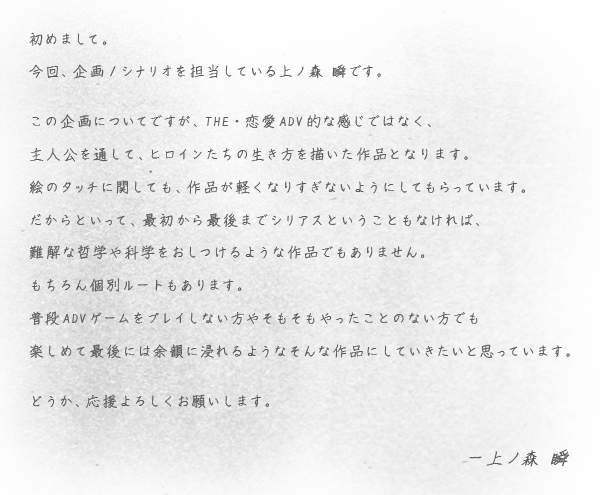 初めまして。
今回、企画/シナリオを担当している上ノ森 瞬です。
この企画についてですが、THE・恋愛ADV的な感じではなく、
主人公を通して、ヒロインたちの生き方を描いた作品となります。
絵のタッチに関しても、作品が軽くなりすぎないようにしてもらっています。
だからといって、最初から最後までシリアスということもなければ、
難解な哲学や科学をおしつけるような作品でもありません。
もちろん個別ルートもあります。
普段ADVゲームをプレイしない方やそもそもやったことのない方でも
楽しめて最後には余韻に浸れるようなそんな作品にしていきたいと思っています。
どうか、応援よろしくお願いします。
ー上ノ森 瞬